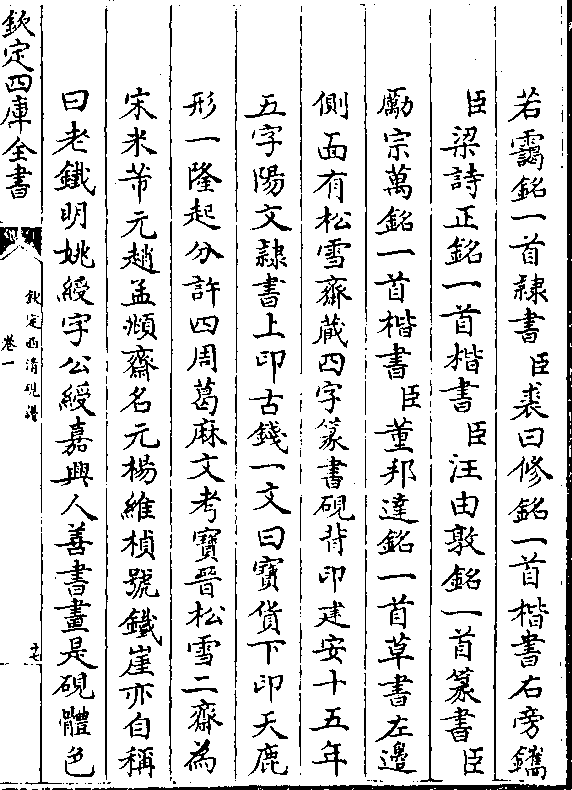 若靄銘一首隸書臣裘曰修銘一首楷書右旁鐫
臣梁詩正銘一首楷書臣汪由敦銘一首篆書臣
勵宗萬銘一首楷書臣董邦達銘一首草書左邊
側面有松雪齋藏四字篆書硯背印建安十五年
五字陽文隸書上印古錢一文曰寳貨下印天鹿
形一隆起分許四周葛麻文考寳晉松雪二齋為
宋米芾元趙孟頫齋名元楊維楨號鐵崖亦自稱
曰老鐵明姚綬字公綬嘉興人善書畫是硯體色
欽定四庫全書
欽定西清硯譜
卷一